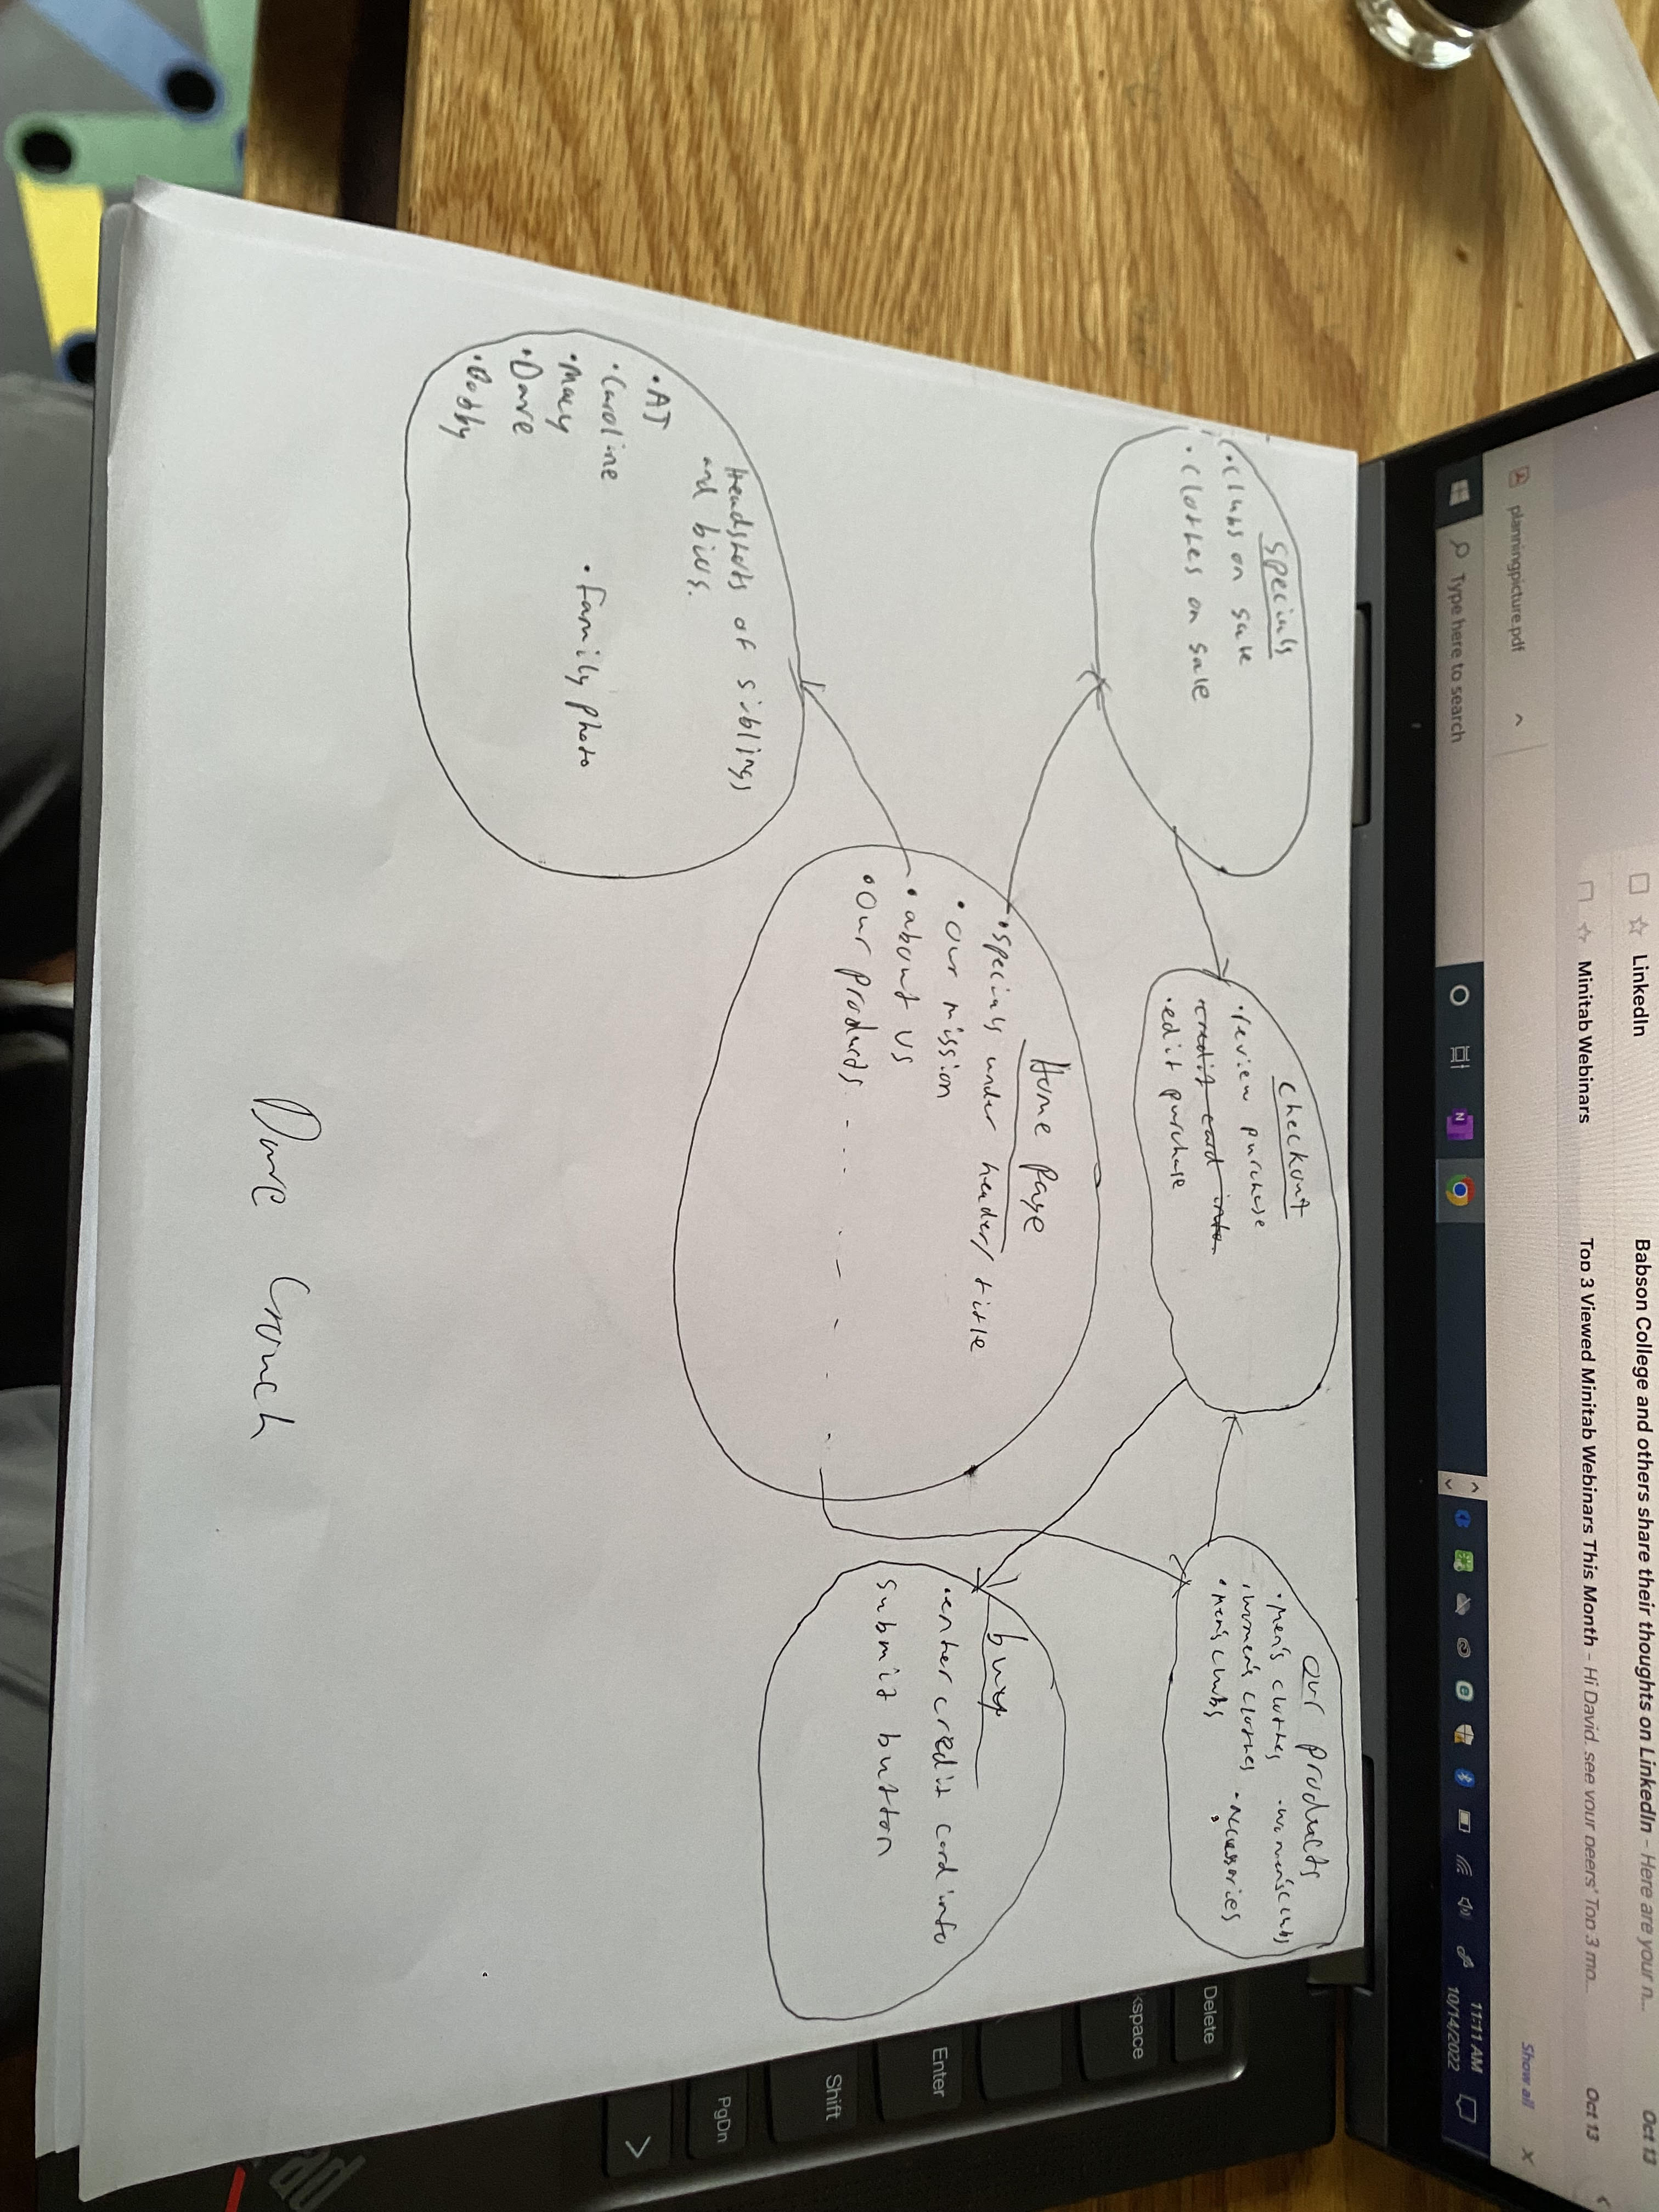 LinkedIn
Babson College and others share their thoughts on LinkedIn - Here are your n...
Oct 13
Minitab Webinars
Top 3 Viewed Minitab Webinars This Month - Hi David, see your peers' Top 3 mo...
Oct 13
planningpicture.pdf
Show all
Type here to search
11:11 AM
10/14/2022
Specials
• Clubs on sale
• Clothes on sale
Checkout
• review purchase
credit card info
• edit purchase
Our products
• Men's clothes • women's clubs
• women's clothes • accessories
• Men's clubs
Home Page
• Specials under header/title
• our mission
• about us
• our products
buy
• enter credit card info
submit button
Headshots of siblings
and bios.
• AJ
• Caroline
• Macy
• Dave
• Bobby
• Family photo
Dave Crouch
Delete
kspace
Enter
Shift
PgDn